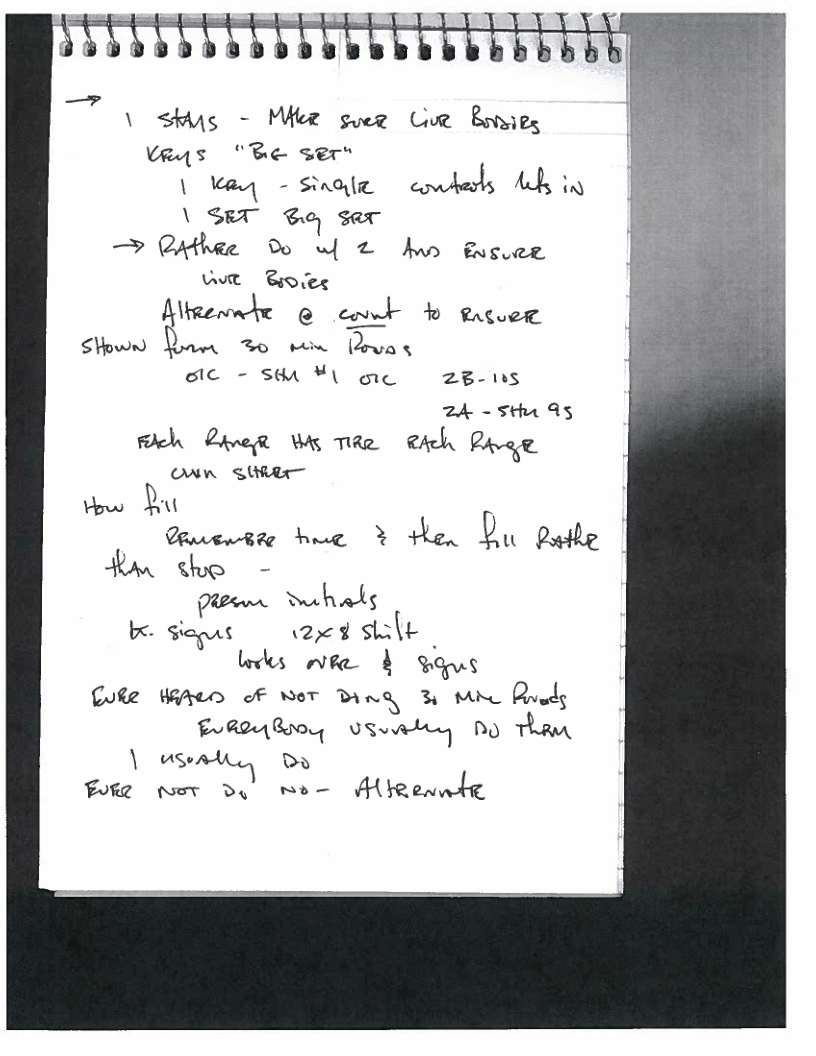 →
1 STAYS - MAKE SURE LIVE BODIES
KEYS "BIG SET"
1 KEY - SINGLE controls lets in
1 SET BIG SET
→ RATHER DO w/ 2 AND ENSURE
LIVE BODIES
Alternate @ count to ENSURE
SHOWN form 30 min Rounds
OIC - SHU #1 OIC 2B-10S
2A - SHU 9S
EACh RANgE HAS TIRE EACh RANgE
own SHEET
How fill
REMEMBER time & then fill RAthE
thAn stop -
initials
Lt. signs 12x8 Shift
looks OVER & signs
EVER HEARD OF NOT DING 30 Min Rounds
EVERYBODY USUAlly DO thEM
I USUAlly DO
EVER NOT DO NO - AltERNAtE